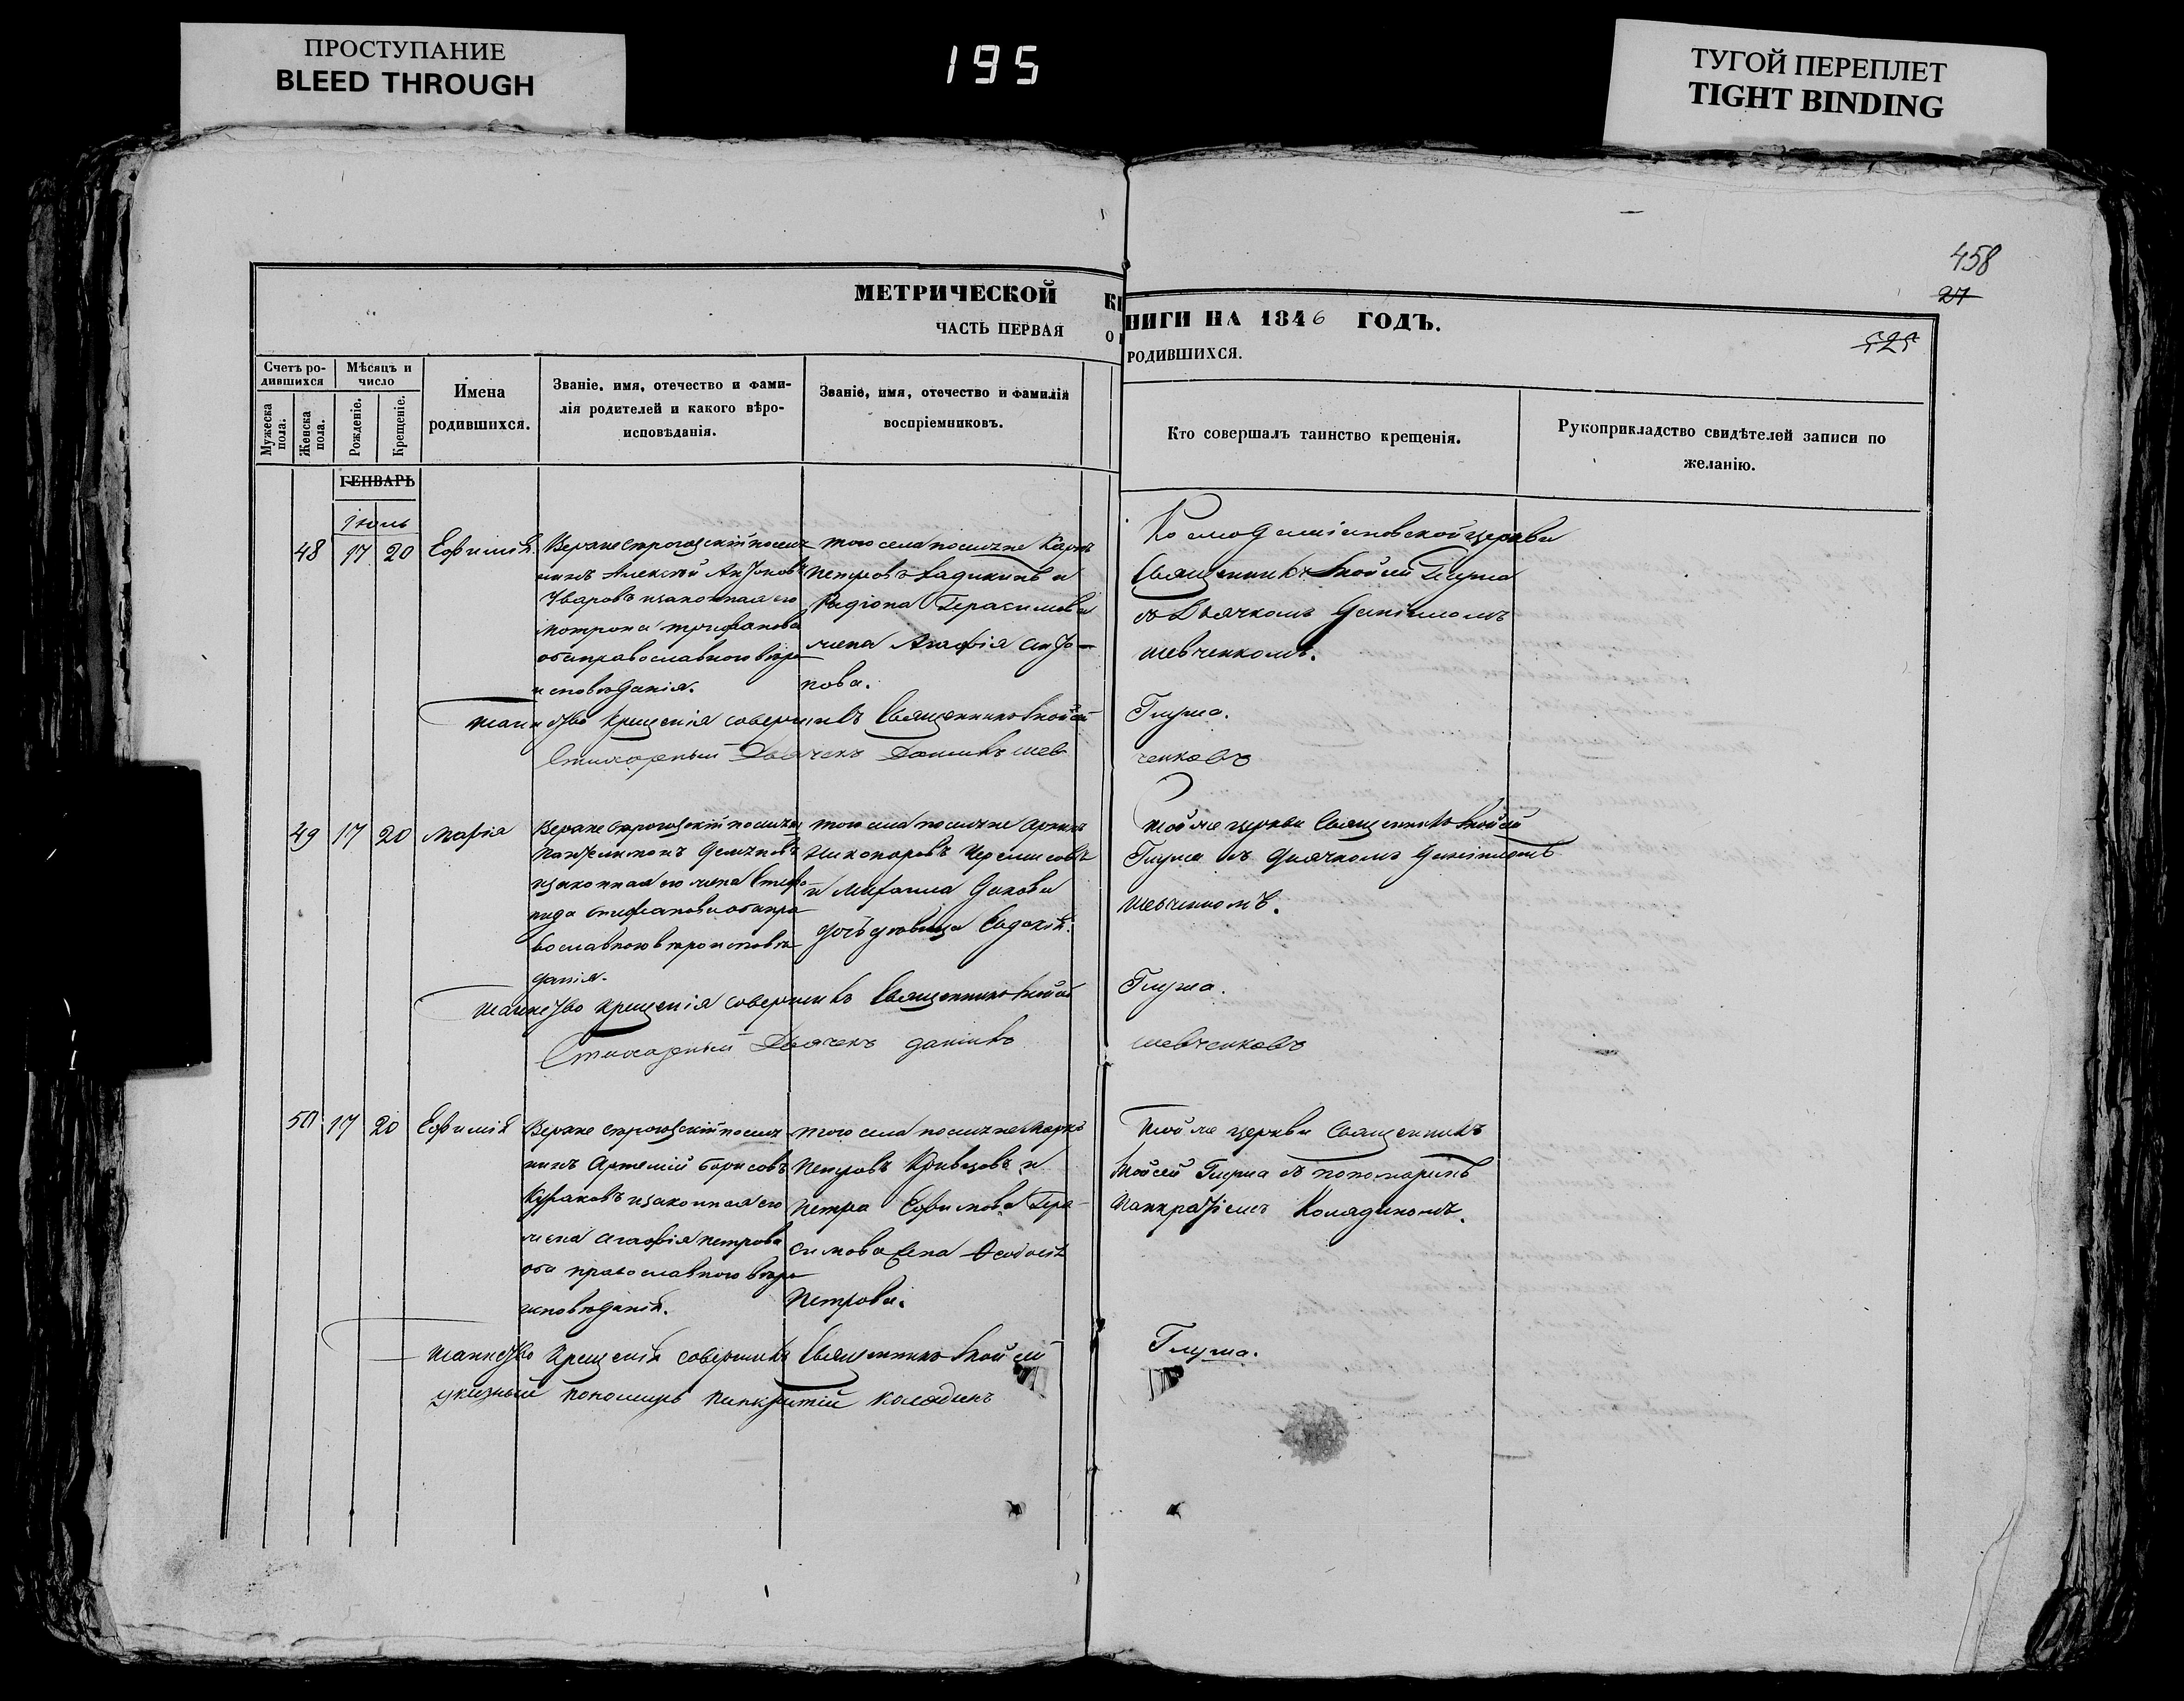 ПРОСТУПАНИЕ
BLEED THROUGH
195
ТУГОЙ ПЕРЕПЛЕТ
TIGHT BINDING
458
27
525
МЕТРИЧЕСКОЙ КНИГИ НА 1846 ГОДЪ.
ЧАСТЬ ПЕРВАЯ О РОДИВШИХСЯ.
Счетъ ро-
дившихся
Мужеска пола.
Женска пола.
Мѣсяцъ и
число
Рожденіе.
Крещеніе.
Имена
родившихся.
Званіе, имя, отечество и фами-
лія родителей и какого вѣро-
исповѣданія.
Званіе, имя, отечество и фамилія
воспріемниковъ.
Кто совершалъ таинство крещенія.
Рукоприкладство свидѣтелей записи по
желанію.
ГЕНВАРЬ
Іюль
48 17 20 Ефимія
поселя
нинъ Алексѣй Антоновъ
Уваровъ изаконная его
Матрона Трифанова
оба православнаго вѣро
исповѣданія.
того села поселяне Карпъ
Петровъ и
Радіона Герасимова
жена Агафія Анто-
нова.
церкви
Священникъ Моисей Глума
съ Дьячкомъ Даніиломъ
Шевченкомъ.
Таинство Крещенія совершилъ Священникъ Моисей Глума.
Стихарный Дьячекъ Даниилъ Шев
ченковъ
49 17 20 Марія
Пантелимонъ
изаконная его жена Степа
нида Стефанова оба пра
вославнаго вѣроисповѣ
данія.
того села поселяне
Никоноровъ Черемисовъ
и Михаила
Евдокія.
Той же церкви Священникъ Моисей
Глума съ Дьячкомъ Даніиломъ
Шевченкомъ.
Таинство Крещенія совершилъ Священникъ Моисей Глума.
Стихарный Дьячекъ Даніилъ Шевченковъ
50 17 20 Ефимія
поселя
нинъ Артемій Борисовъ
изаконная его
жена Агафія Петрова
оба православнаго вѣро
исповѣданія.
того села поселяне Карпъ
Петровъ Кривцовъ и
Петра Ефимова Гера-
симова жена Ѳеодосія
Петрова.
Той же церкви Священникъ
Моисей Глума съ пономаремъ
Панкратіемъ Колядиномъ.
Таинство Крещенія совершилъ Священникъ Моисей Глума.
указный пономарь Панкратій Колядинъ